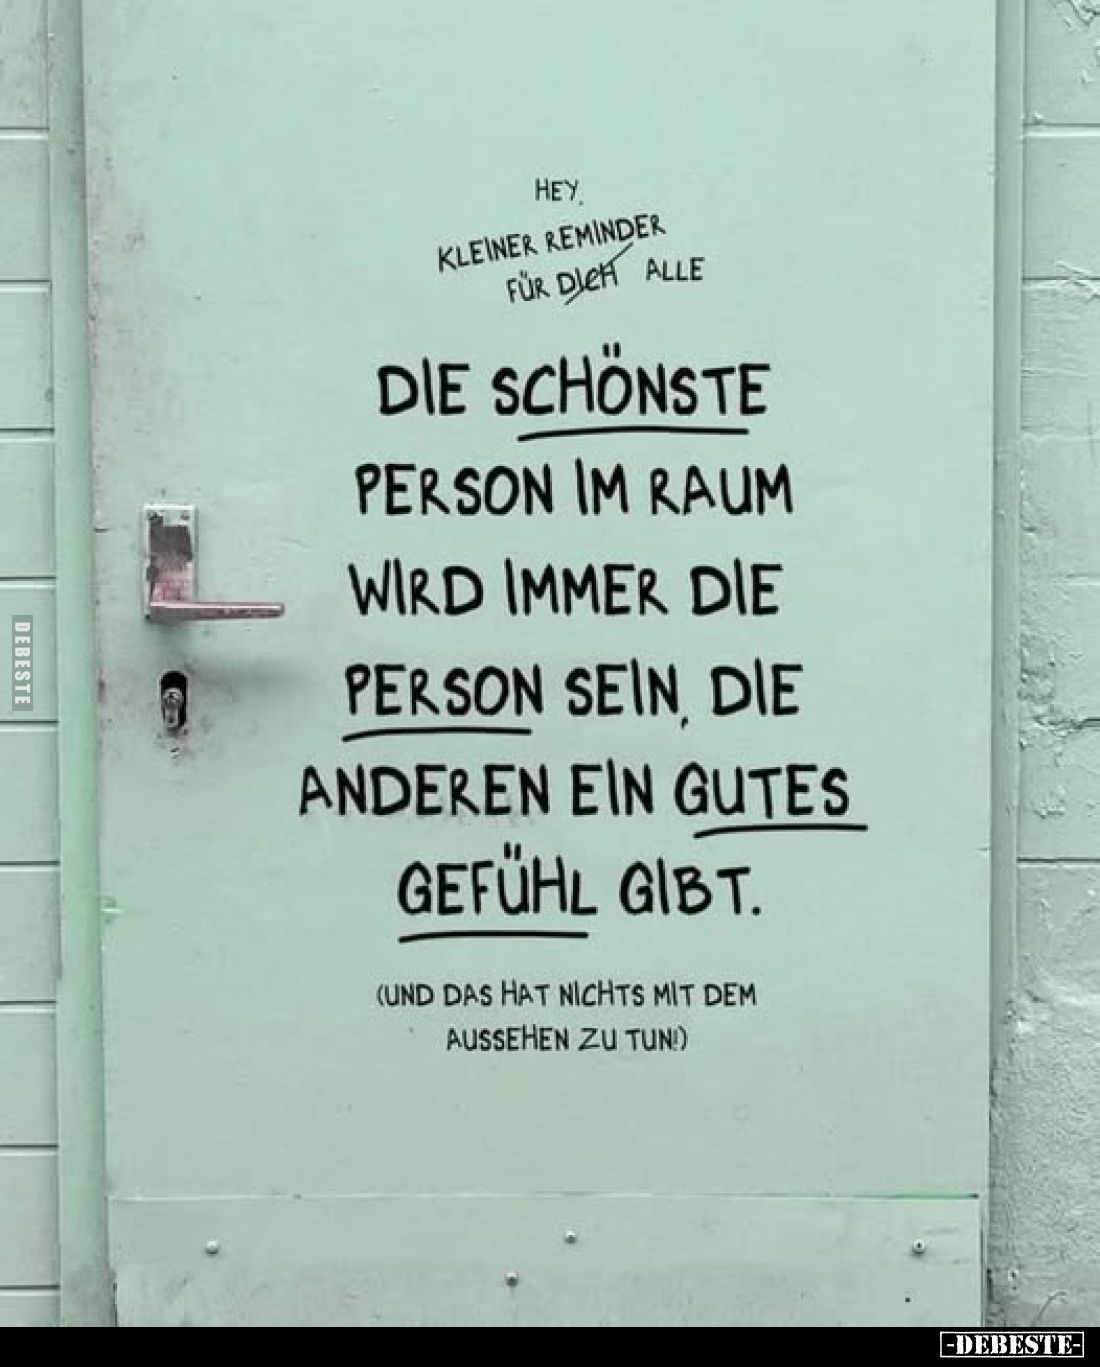 HEY.
KLEINER REMINDER
FÜR DICH ALLE
DIE SCHÖNSTE
PERSON IM RAUM
WIRD IMMER DIE
PERSON SEIN, DIE
ANDEREN EIN GUTES
GEFÜHL GIBT.
(UND DAS HAT NICHTS MIT DEM
AUSSEHEN ZU TUN!)
DEBESTE
-DEBESTE-